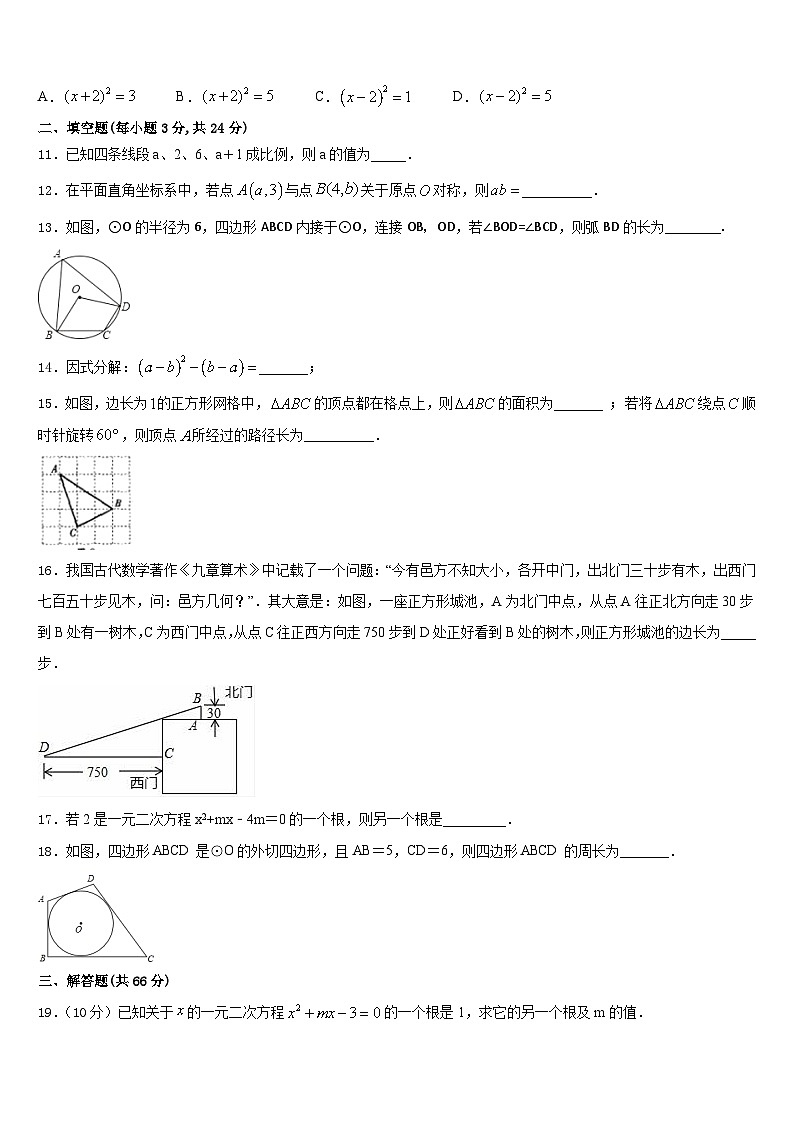 A．(x+2)²＝3 B．(x+2)²＝5 C．(x−2)²＝1 D．(x−2)²＝5
二、填空题(每小题3分,共24分)
11．已知四条线段a、2、6、a＋1成比例，则a的值为_____．
12．在平面直角坐标系中，若点A(a,3)与点B(4,b)关于原点O对称，则ab＝__________．
13．如图，⊙O的半径为6，四边形ABCD内接于⊙O，连接OB，OD，若∠BOD=∠BCD，则弧BD的长为________．
A
O
D
B
C
14．因式分解：(a−b)²−(b−a)＝_______；
15．如图，边长为1的正方形网格中，ΔABC的顶点都在格点上，则ΔABC的面积为_______ ；若将ΔABC绕点C顺
时针旋转60°，则顶点A所经过的路径长为__________．
A
B
C
16．我国古代数学著作《九章算术》中记载了一个问题：“今有邑方不知大小，各开中门，出北门三十步有木，出西门
七百五十步见木，问：邑方几何？”．其大意是：如图，一座正方形城池，A为北门中点，从点A往正北方向走30步
到B处有一树木，C为西门中点，从点C往正西方向走750步到D处正好看到B处的树木，则正方形城池的边长为_____
步．
B 北门
30
A
D
C
750
西门
17．若2是一元二次方程x²+mx﹣4m＝0的一个根，则另一个根是_________．
18．如图，四边形ABCD 是⊙O的外切四边形，且AB＝5，CD＝6，则四边形ABCD 的周长为_______．
D
A
O
B
C
三、解答题(共66分)
19．（10分）已知关于x的一元二次方程x²+mx−3＝0的一个根是1，求它的另一个根及m的值．